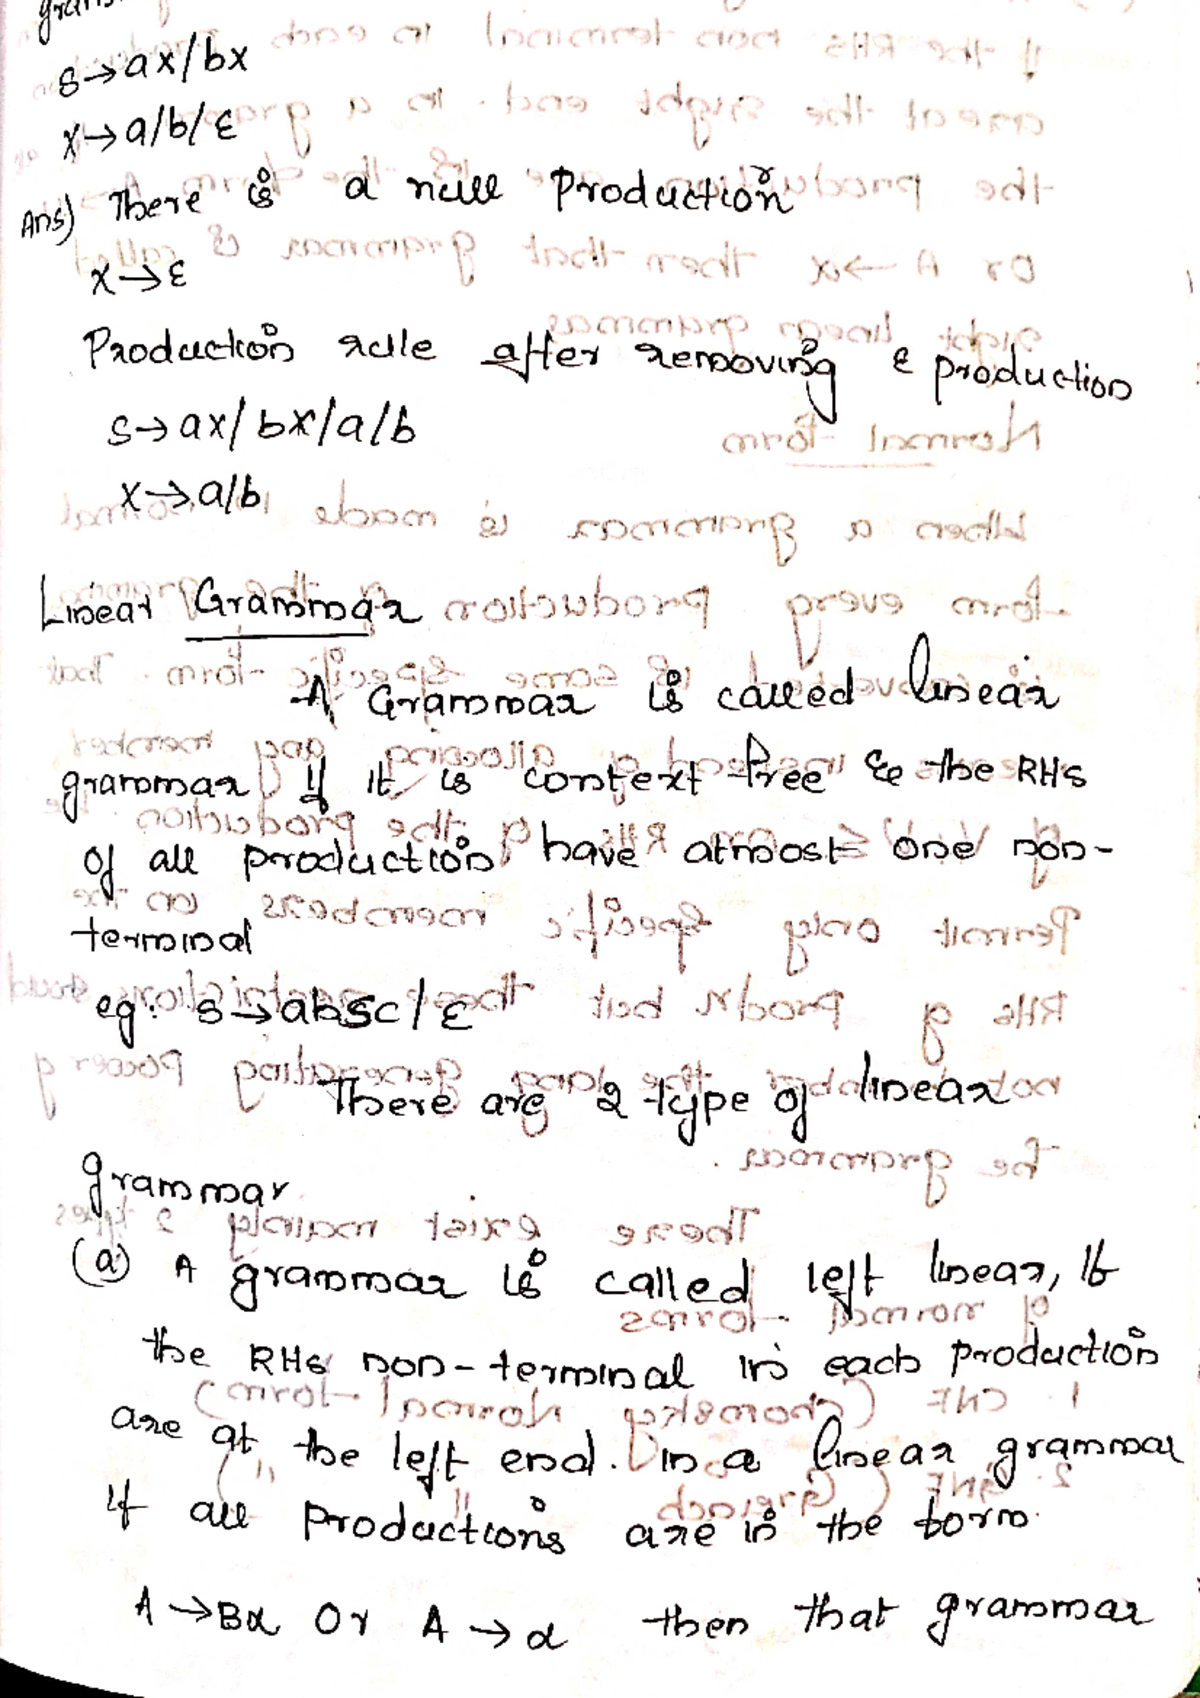 S→aX/bX
X→a/b/ε
Ans) There is a null Production
X→ε
Production rule after removing ε production
S→aX/bX/a/b
X→a/b
Linear Grammar
A Grammar is called linear
grammar if it is context free & the RHS
of all production have atmost one non-
terminal
eg: S→abSc/ε
There are 2 type of linear
grammar
(a) A grammar is called left linear, If
the RHS non-terminal in each production
are at the left end. In a linear grammar
if all Productions are in the form
A→Bα Or A→α then that grammar